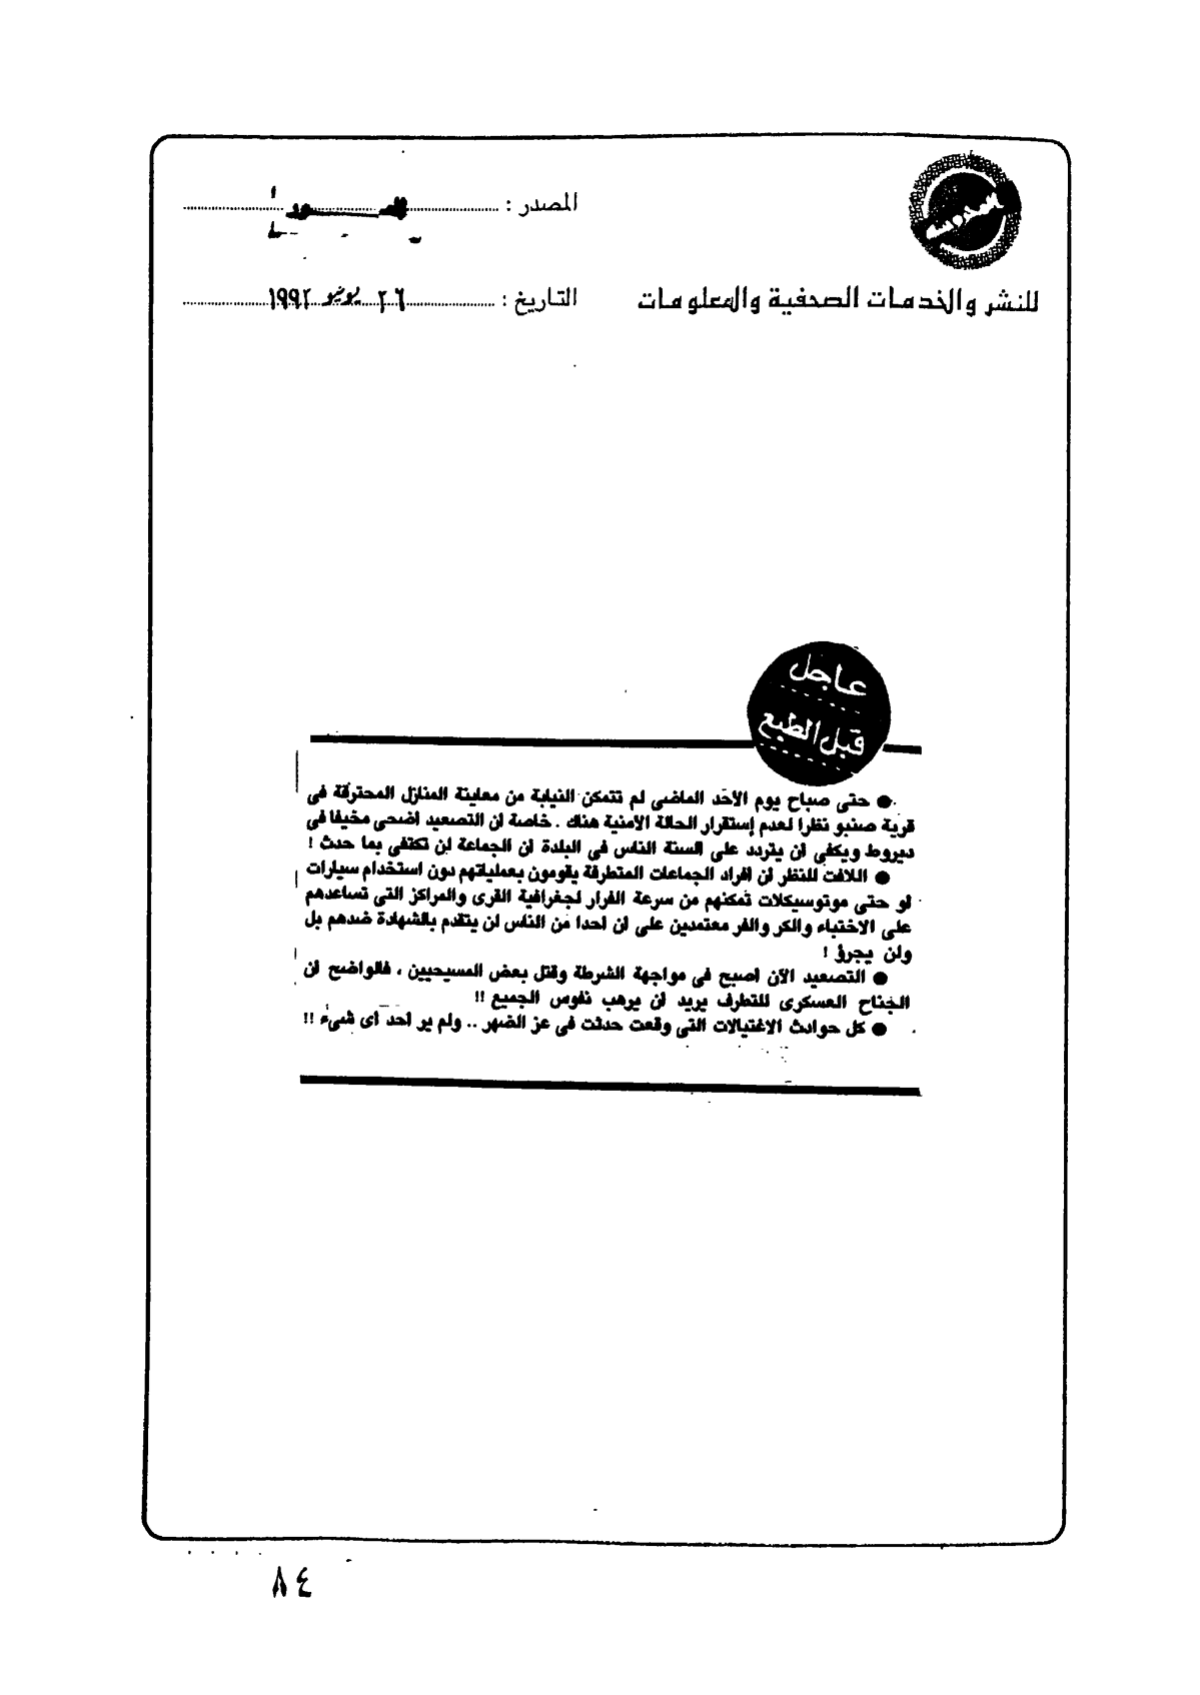 المصدر :
للنشر والخدمات الصحفية والمعلومات
التاريخ : ٢٦ يونيو ١٩٩٢
عاجل
قبل الطبع
● حتى صباح يوم الأحد الماضى لم تتمكن النيابة من معاينة المنازل المحترقة فى
قرية صنبو نظرا لعدم إستقرار الحالة الأمنية هناك . خاصة ان التصعيد اضحى مخيفا فى
ديروط ويكفى ان يتردد على السنة الناس فى البلدة ان الجماعة لن تكتفى بما حدث !
● اللافت للنظر ان افراد الجماعات المتطرفة يقومون بعملياتهم دون استخدام سيارات
او حتى موتوسيكلات تمكنهم من سرعة الفرار لجغرافية القرى والمراكز التى تساعدهم
على الاختباء والكر والفر معتمدين على ان احدا من الناس لن يتقدم بالشهادة ضدهم بل
ولن يجرؤ !
● التصعيد الآن اصبح فى مواجهة الشرطة وقتل بعض المسيحيين ، فالواضح ان
الجناح العسكرى للتطرف يريد ان يرهب نفوس الجميع !!
● كل حوادث الاغتيالات التى وقعت حدثت فى عز الضهر .. ولم ير احد أى شىء !!
٨٤